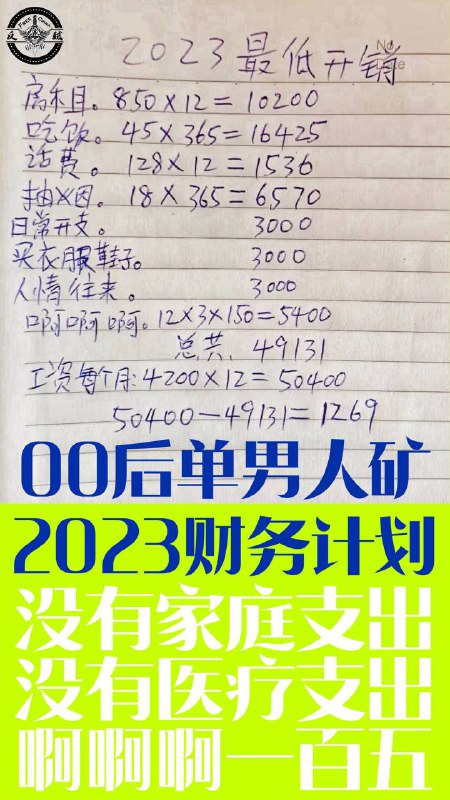 Face Chaos
反 贼
2023最低开销
No
Date
房租。850×12=10200
吃饭。45×365=16425
话费。128×12=1536
抽烟。18×365=6570
日常开支。 3000
买衣服鞋子。 3000
人情往来。 3000
啊啊啊。12×3×150=5400
总共、49131
工资每个月:4200×12=50400
50400-49131=1269
00后单男人矿
2023财务计划
没有家庭支出
没有医疗支出
啊啊啊一百五